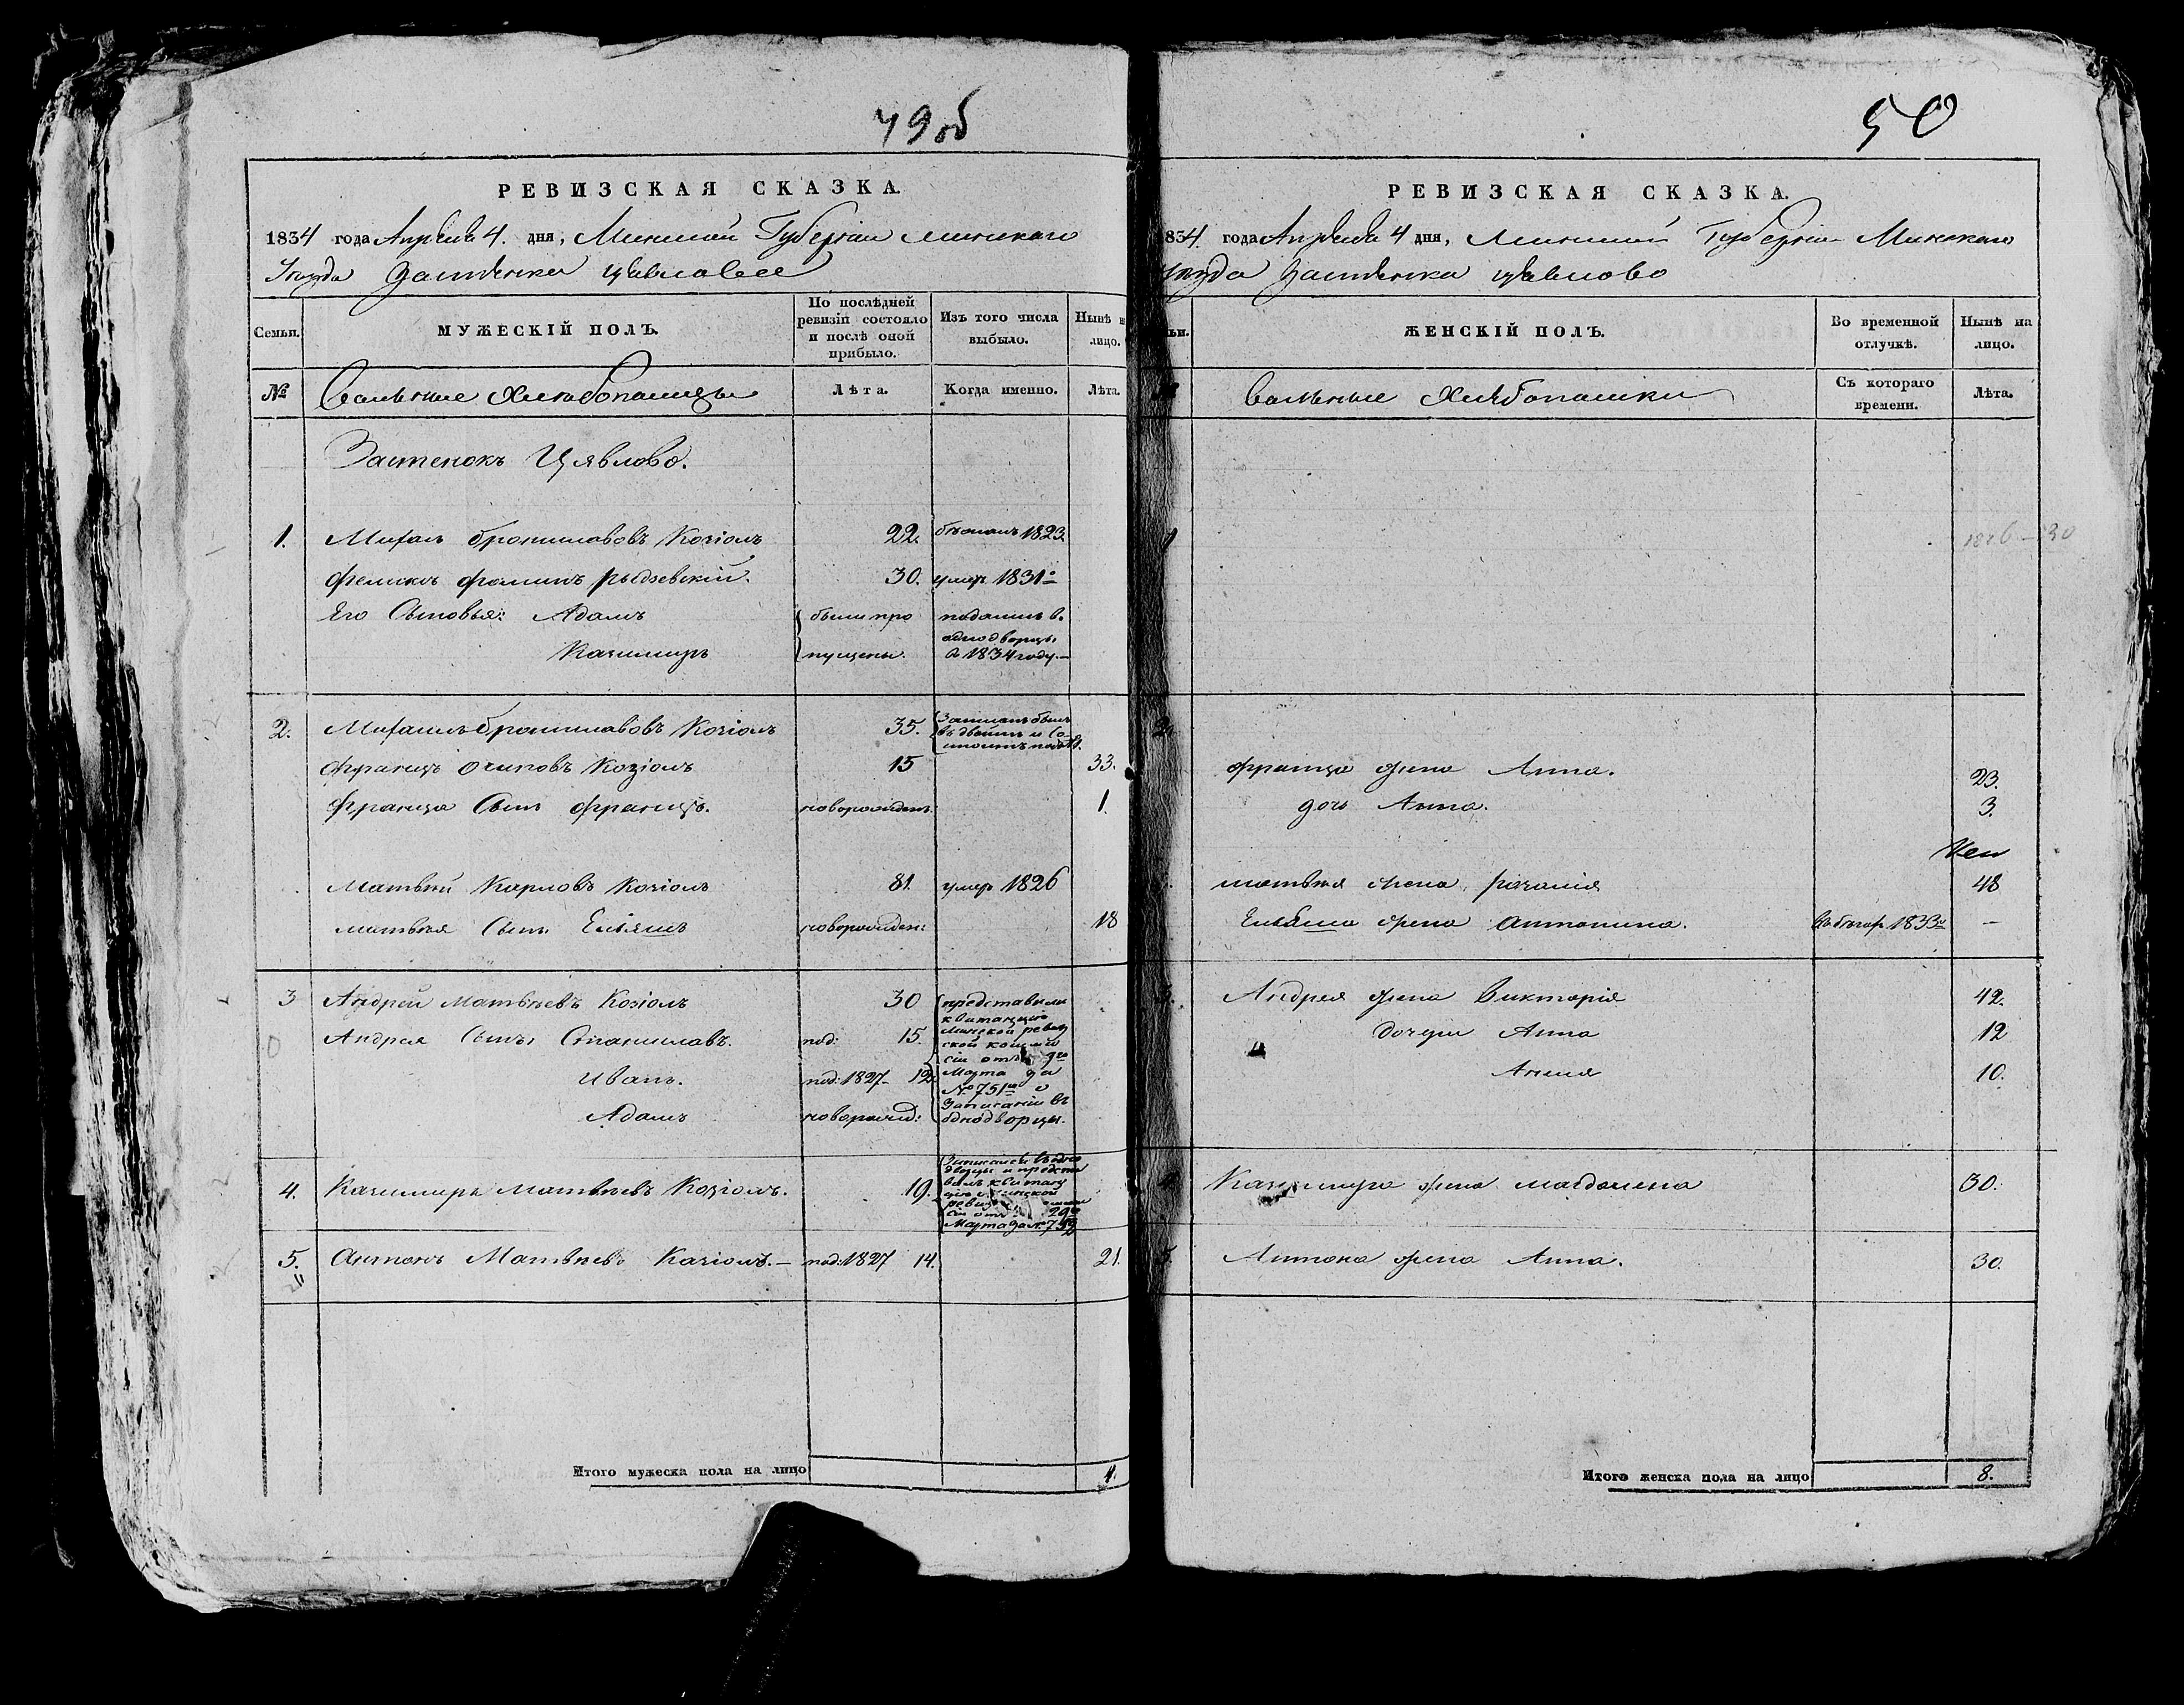 49об
РЕВИЗСКАЯ СКАЗКА.
1834 года Апреля 4. дня, Минской Губернии Минскаго
Уезда Застенка Цявлово
Семьи.
МУЖЕСКІЙ ПОЛЪ.
По послѣдней ревизіи состояло и послѣ оной прибыло.
Изъ того числа выбыло.
Нынѣ на лицо.
№
Вольные Хлебопашцы
Лѣта.
Когда именно.
Лѣта.
Застенокъ Цявлово.
1. Михалъ Брониславовъ Козіолъ 22. 1823.
Феликсъ Фоминъ Рыдзевскій. 30. умеръ 1831
Его Сыновья: Адамъ были про
Казимиръ пущены. 1834 году.
2. Михаилъ Брониславовъ Козіолъ 35. Записанъ былъ
Францъ Осиповъ Козіолъ 15 33.
Франца Сынъ Францъ. новорожден. 1.
Матвѣй Карповъ Козіолъ 81. умеръ 1826
Матвѣя Сынъ Ельяшъ новорожден: 18
3 Андрей Матвѣевъ Козіолъ 30 представили
квитанцію
Минской ревиз
ской коммис
сіи отъ 9го
Марта за
№ 751м о
Записаніи въ
однодворцы.
Андрея Сынъ Станиславъ. под: 15.
Иванъ. под: 1827 12.
Адамъ новорожд:
4. Казимиръ Матвѣевъ Козіолъ. 19.
Марта за №
5. Антонъ Матвѣевъ Козіолъ. под: 1827 14. 21.
Итого мужеска пола на лицо 4.
50
РЕВИЗСКАЯ СКАЗКА.
834. года Апреля 4 дня, Минской Губерніи Минскаго
Уезда Застенка Цявлово
ЖЕНСКІЙ ПОЛЪ.
Во временной отлучкѣ.
Нынѣ на лицо.
Вольные Хлѣбопашки
Съ котораго времени.
Лѣта.
1
2.
Франца жена Анна. 23.
дочь Анна. 3.
Матвѣя жена Розалія 48
Ельяша жена Антонина. 1833 —
3. Андрея жена Викторія 42.
Дочери Анна 12
Анеля 10.
4 Казимира жена Магдалена 30.
5. Антона жена Анна. 30.
Итого женска пола на лицо 8.